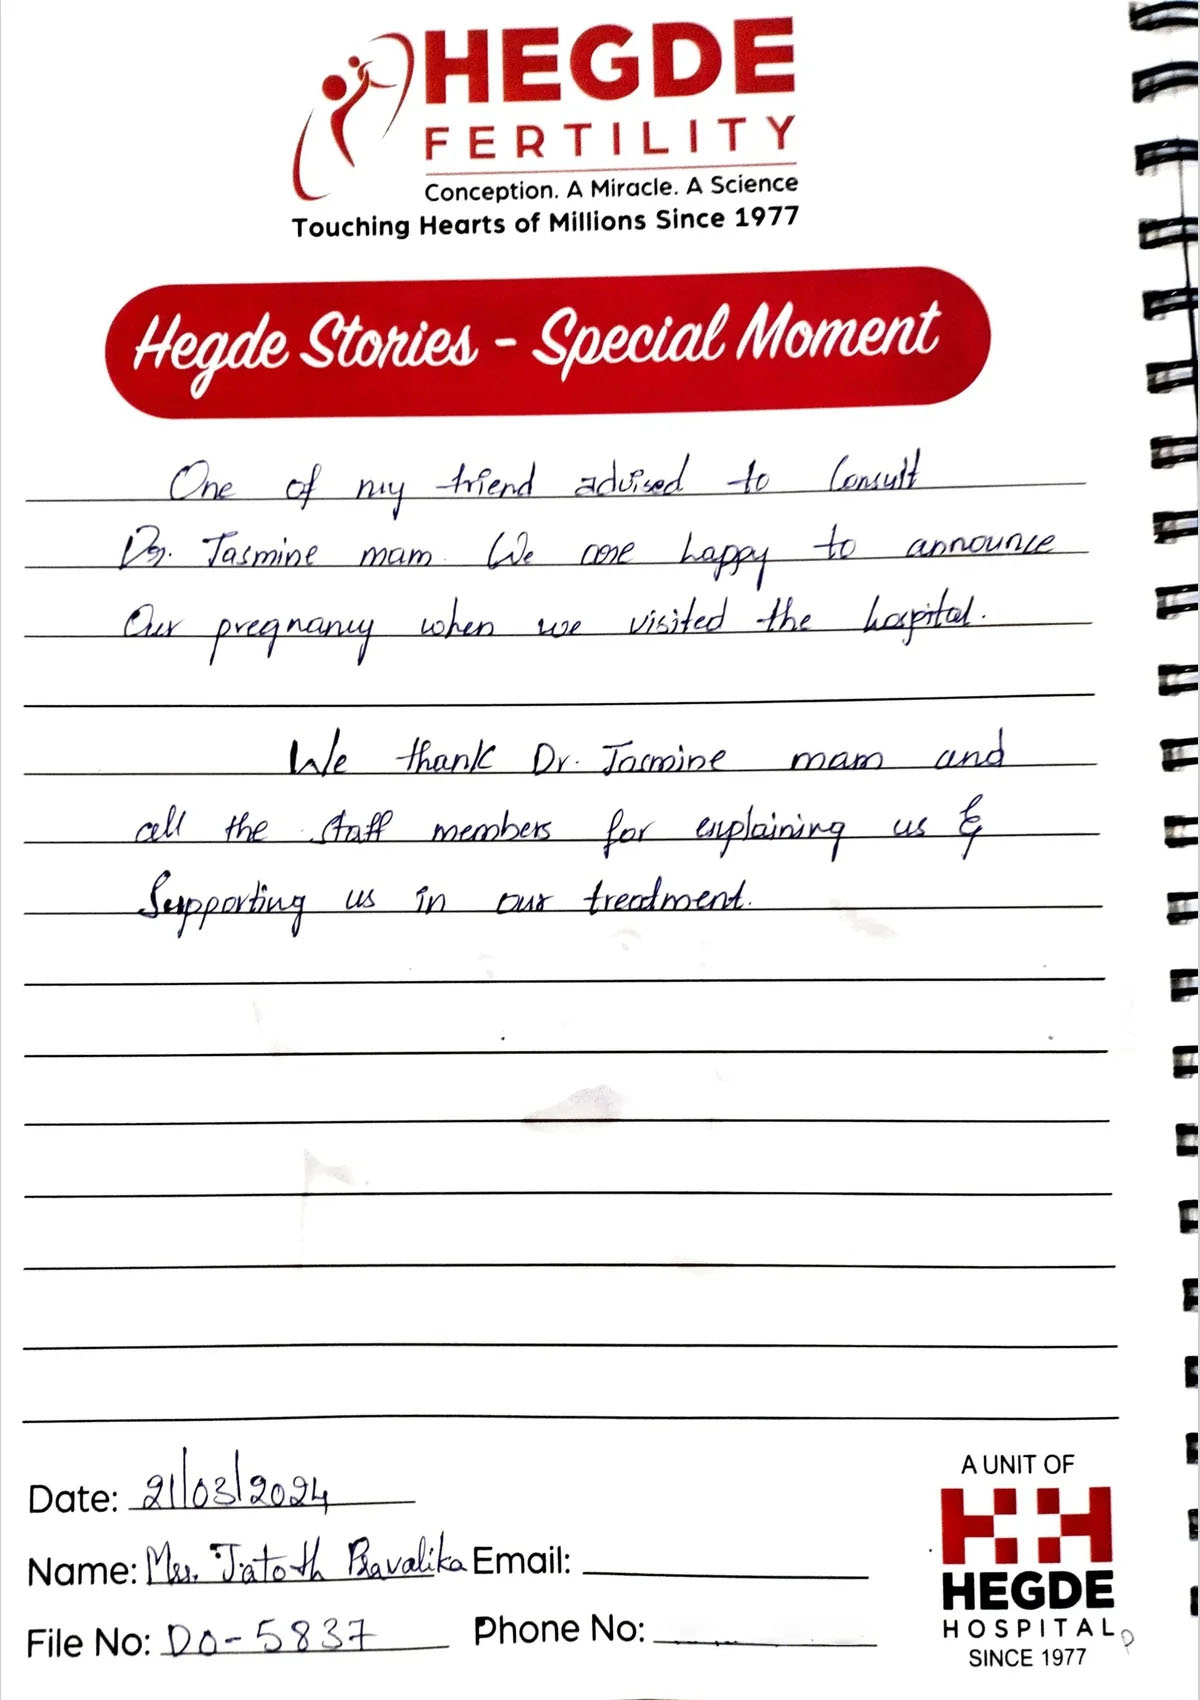 HEGDE
FERTILITY
Conception. A Miracle. A Science
Touching Hearts of Millions Since 1977
Hegde Stories - Special Moment
One of my friend advised to Consult
Dr. Jasmine mam. We are happy to announce
Our pregnancy when we visited the hospital.
We thank Dr. Jasmine mam and
all the staff members for explaining us &
Supporting us in our treatment.
Date: 21/03/2024
Name: Mrs. Jatoth Pravalika Email:
File No: DO-5837 Phone No:
A UNIT OF
HEGDE
HOSPITAL
SINCE 1977